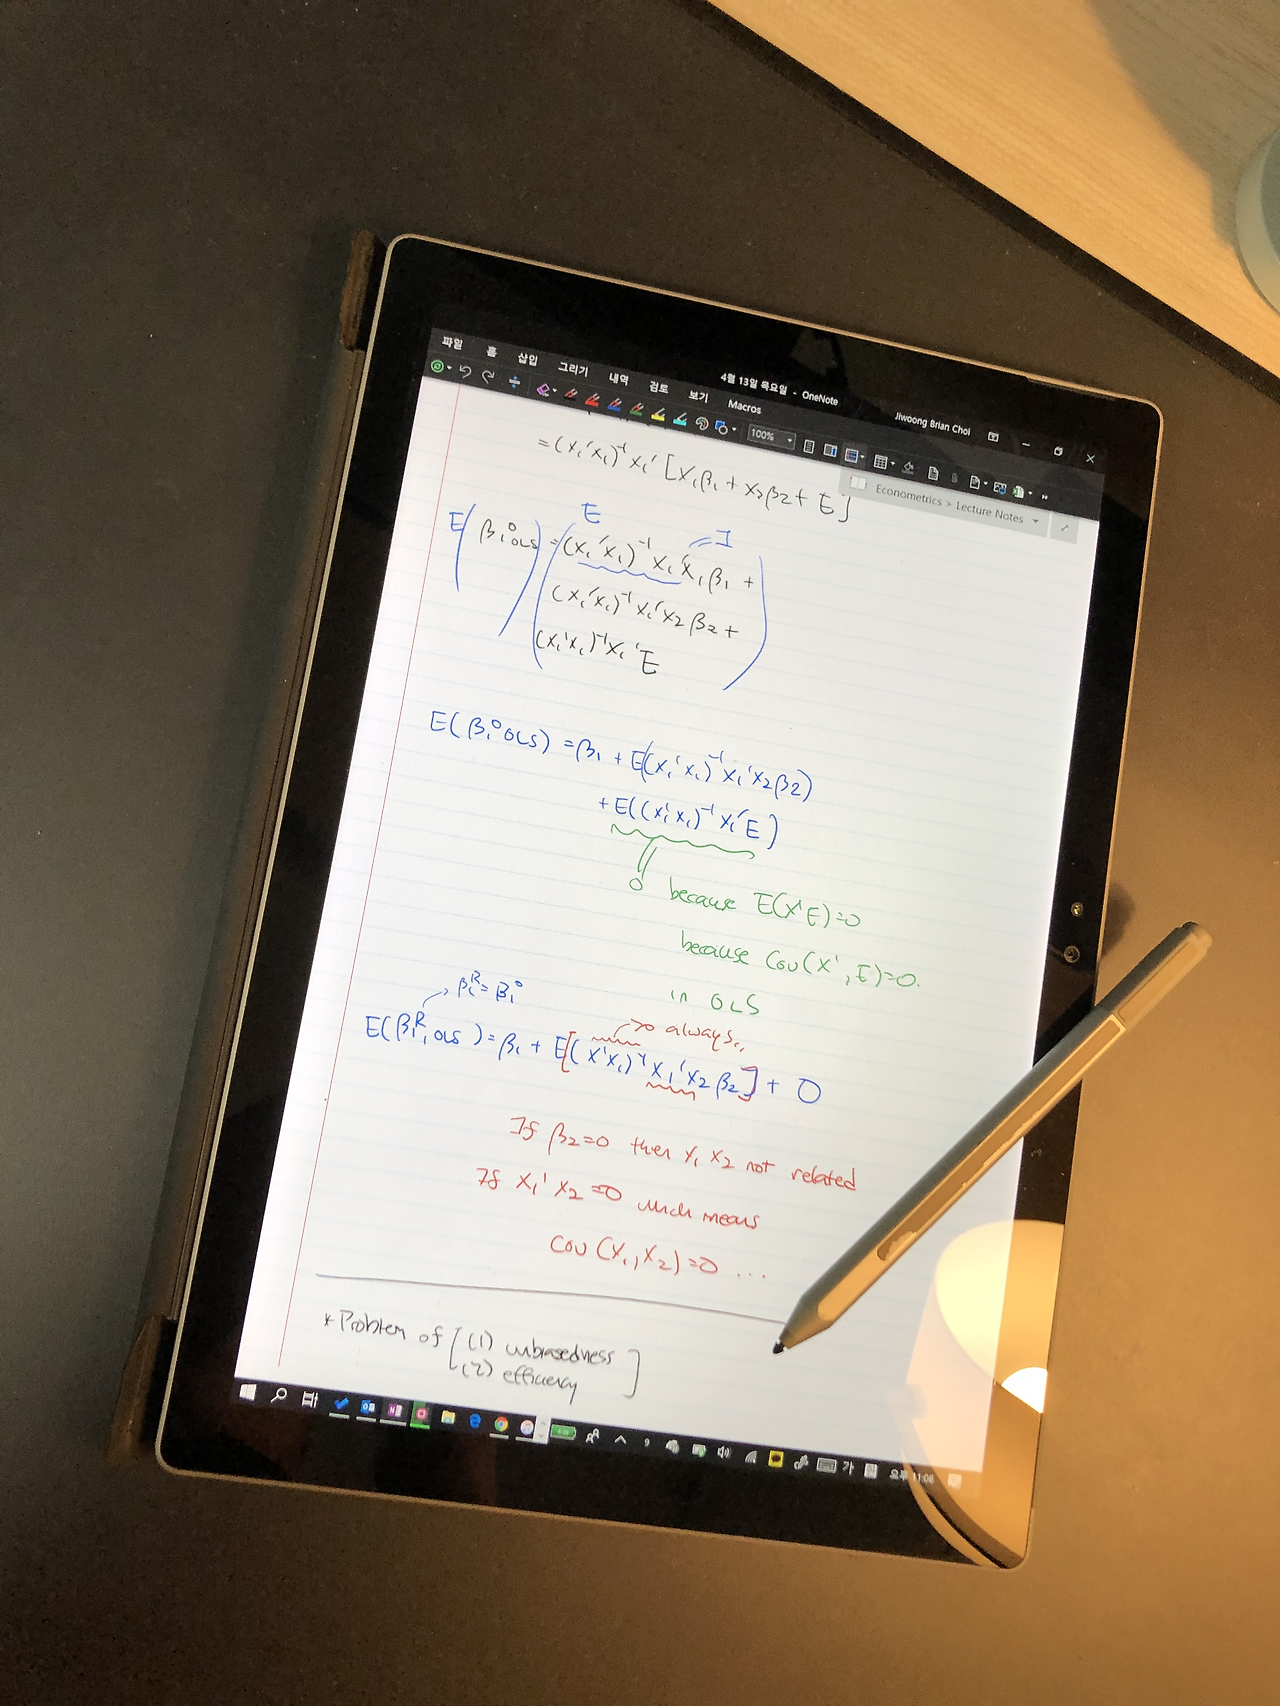 4월 13일 목요일 - OneNote
Jiwoong Brian Choi
파일 홈 삽입 그리기 내역 검토 보기 Macros
100%
Econometrics > Lecture Notes
= (X₁'X₁)⁻¹X₁' [X₁β₁ + X₂β₂ + E]
E = I
E(β₁⁰OLS) = ((X₁'X₁)⁻¹X₁'X₁β₁ +
(X₁'X₁)⁻¹X₁'X₂β₂ +
(X₁'X₁)⁻¹X₁'E)
E(β₁⁰OLS) = β₁ + E((X₁'X₁)⁻¹X₁'X₂β2)
+ E((X₁'X₁)⁻¹X₁'E)
0 because E(X'E)=0
because Cov(X', E)=0.
in OLS
β₁ᴿ = β₁⁰
>0 always
E(β₁ᴿ,OLS) = β₁ + E[(X'X₁)⁻¹X₁'X₂β₂] + 0
If β₂=0 then X₁ X₂ not related
If X₁'X₂=0 which means
Cov(X₁, X₂)=0 ...
* Problem of [(1) unbiasedness
(2) efficiency]
가
오후 11:06